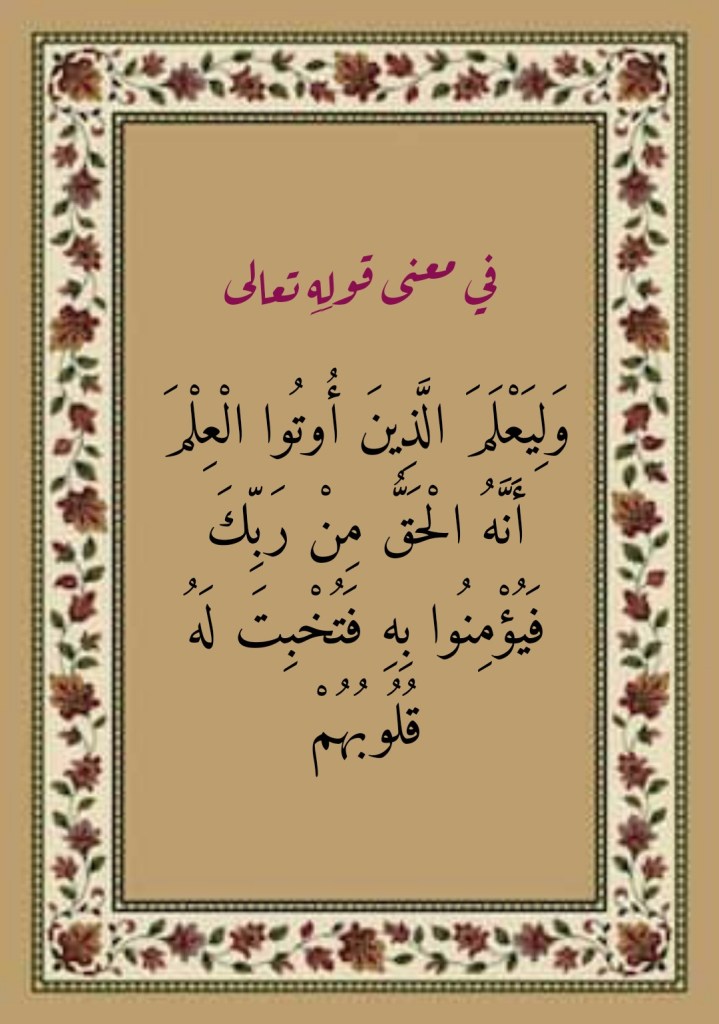 في معنى قولِهِ تعالى
وَلِيَعْلَمَ الَّذِينَ أُوتُوا الْعِلْمَ
أَنَّهُ الْحَقُّ مِنْ رَبِّكَ
فَيُؤْمِنُوا بِهِ فَتُخْبِتَ لَهُ
قُلُوبُهُمْ